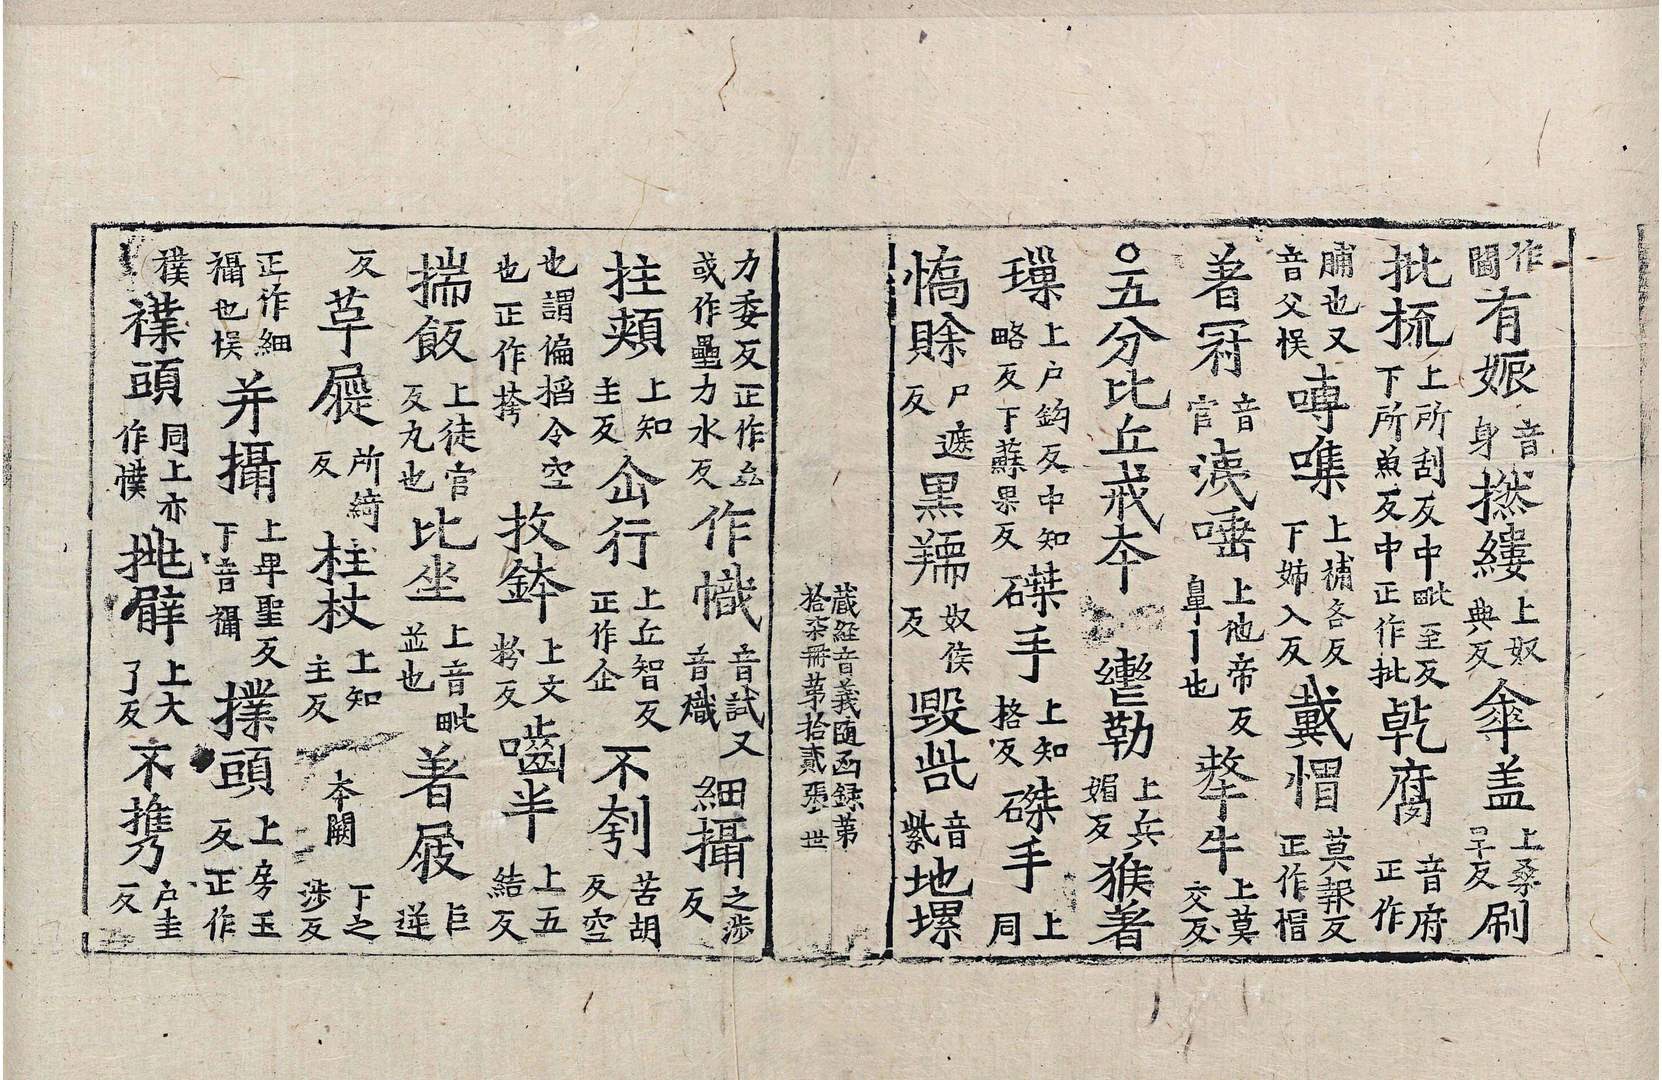 作閫有娠音身撚縷上奴典反傘盖上桑旦反刷
批梳上所刮反中毗至反下所魚反中正作批乾腐音府正作
脯也又音父悮嗶噍上補各反下姉入反戴帽莫報反正作帽
著冠音官洟唾上他帝反鼻丨也犛牛上莫交反
○五分比丘戒夲轡勒上兵媚反猴著
璅上户鈎反中知略反下蘇果反磔手上知格反磔手上同
憍賖尸遮反黒羺奴侯反毀呰音紫地螺
藏經音義隨函録第拾柒冊第拾貳張世
力委反正作厽或作壘力水反作幟音試又音熾細攝之涉反
拄頰上知主反仚行上丘智反正作企不刳苦胡反空
也謂偏搯令空也正作挎抆鉢上文粉反嚙半上五結反
揣飯上徒官反丸也比坐上音毗並也著屐巨逆
反草屣所綺反柱杖上知主反夲闕下之涉反
正作細襵也悮并攝上卑聖反下音襵撲頭上房玉反正作
襆襆頭同上亦作幞挑擗上大了反不㩗户圭反